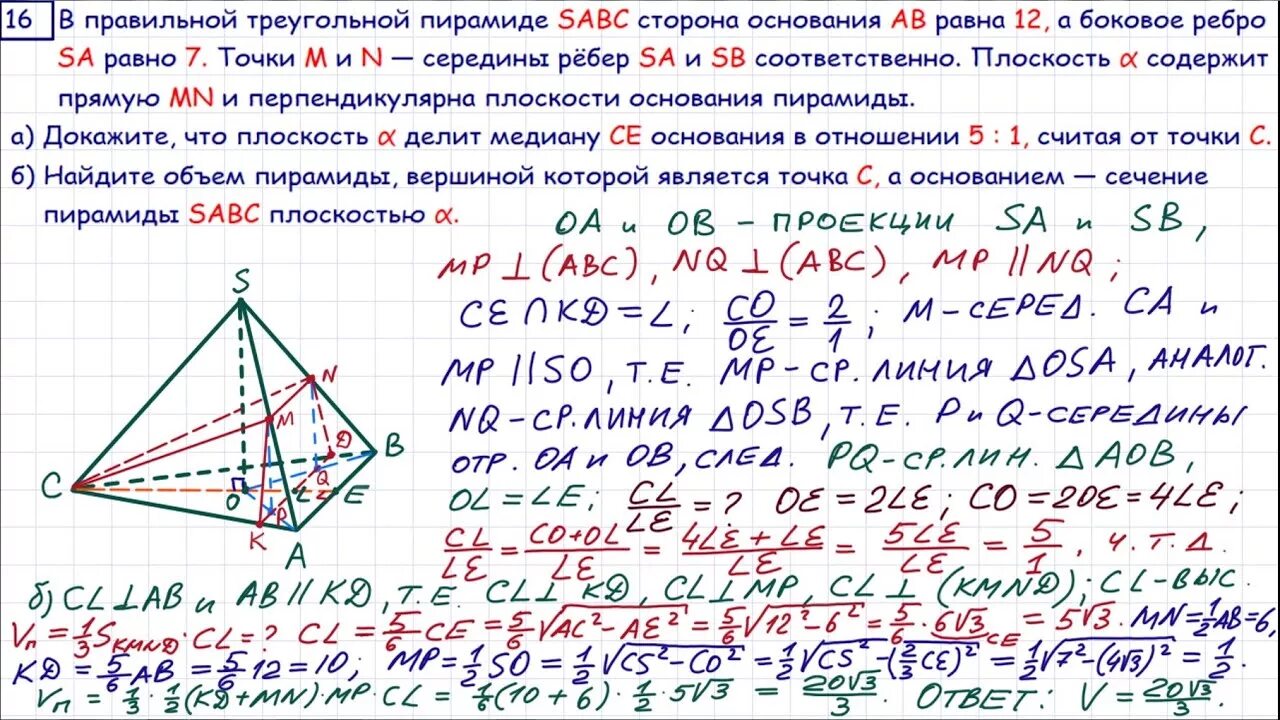 16 В правильной треугольной пирамиде SABC сторона основания AB равна 12, а боковое ребро
SA равно 7. Точки M и N — середины рёбер SA и SB соответственно. Плоскость α содержит
прямую MN и перпендикулярна плоскости основания пирамиды.
а) Докажите, что плоскость α делит медиану CE основания в отношении 5 : 1, считая от точки C.
б) Найдите объем пирамиды, вершиной которой является точка C, а основанием — сечение
пирамиды SABC плоскостью α.
OA и OB - ПРОЕКЦИИ SA и SB,
MP ⊥ (ABC), NQ ⊥ (ABC), MP || NQ;
CE ∩ KD = L; CO/OE = 2/1; M - СЕРЕД. CA и
MP || SO, Т.Е. MP - СР. ЛИНИЯ △OSA, АНАЛОГ.
NQ - СР. ЛИНИЯ △OSB, Т.Е. P и Q - СЕРЕДИНЫ
ОТР. OA и OB, СЛЕД. PQ - СР. ЛИН. △AOB,
OL = LE; CL/LE = ? OE = 2LE; CO = 2OE = 4LE;
CL/LE = (CO+OL)/LE = (4LE+LE)/LE = 5LE/LE = 5/1, Ч.Т.Д.
S
N
M
B
D
Q
C
O
L
E
P
K
A
б) CL ⊥ AB и AB || KD, Т.Е. CL ⊥ KD, CL ⊥ MP, CL ⊥ (KMND); CL - ВЫС.
Vп = 1/3 S KMND · CL = ? CL = 5/6 CE = 5/6 √(AC² - AE²) = 5/6 √(12² - 6²) = 5/6 · 6√3 CE = 5√3. MN = 1/2 AB = 6,
KD = 5/6 AB = 5/6 · 12 = 10; MP = 1/2 SO = 1/2 √(CS² - CO²) = 1/2 √(CS² - (2/3 CE)²) = 1/2 √(7² - (4√3)²) = 1/2.
Vп = 1/3 · 1/2 (KD + MN) · MP · CL = 1/6 (10 + 6) · 1/2 · 5√3 = 20√3/3. ОТВЕТ: V = 20√3/3.